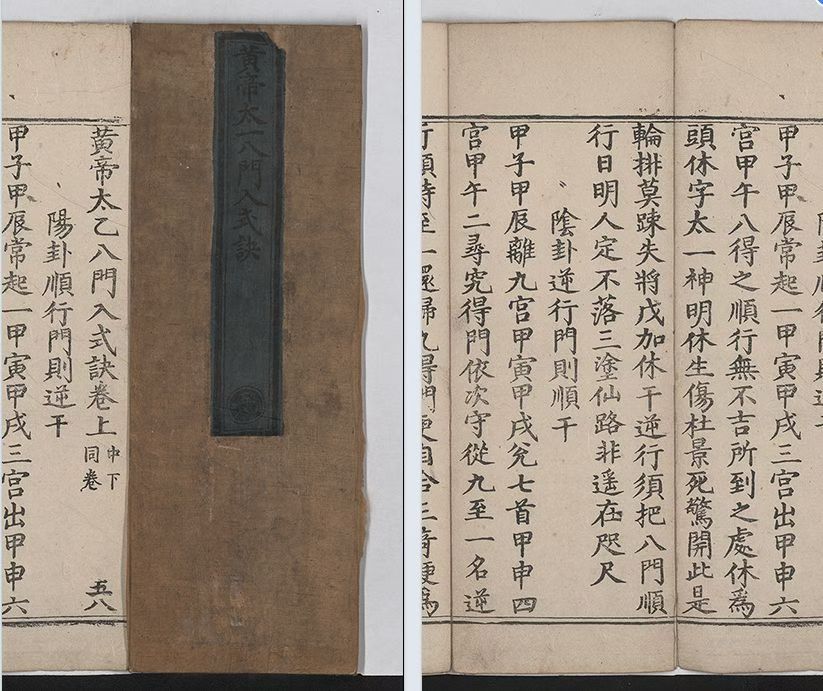 黃帝太一八門入式訣
黃帝太乙八門入式訣卷上 中下同卷 五八
陽卦順行門則逆干
甲子甲辰常起一甲寅甲戌三宮出甲申六
甲子甲辰常起一甲寅甲戌三宮出甲申六
宮甲午八得之順行無不吉所到之處休爲
頭休字太一神明休生傷杜景死驚開此是
輪排莫踈失將戊加休干逆行須把八門順
行日明人定不落三塗仙路非遥在咫尺
陰卦逆行門則順干
甲子甲辰離九宮甲寅甲戌兊七首甲申四
宮甲午二尋究得門依次守從九至一名逆